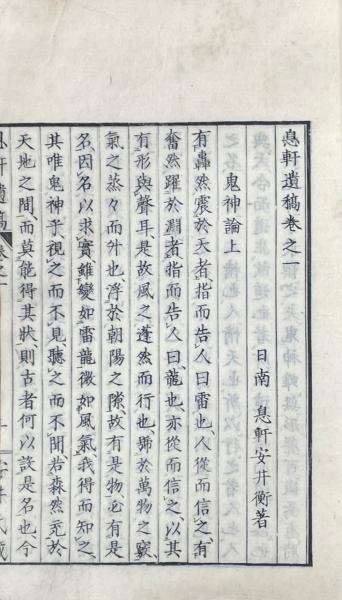 息軒遺稿卷之一
日南 息軒安井衡著
鬼神論上
有轟然震於天者、指而告人曰、雷也、人從而信之、有
奮然躍於淵者、指而告人曰、龍也、亦從而信之、以其
有形與聲耳、是故風之蓬然而行也、號於萬物之竅、
氣之蒸々而升也、浮於朝陽之隙、故有是物、必有是
名、因名以求實、雖變如雷龍、微如風氣、我得而知之、
其唯鬼神乎、視之而不見、聽之而不聞、若森然充於
天地之間、而莫能得其狀、則古者何以設是名也、今
息軒遺稿 卷之一